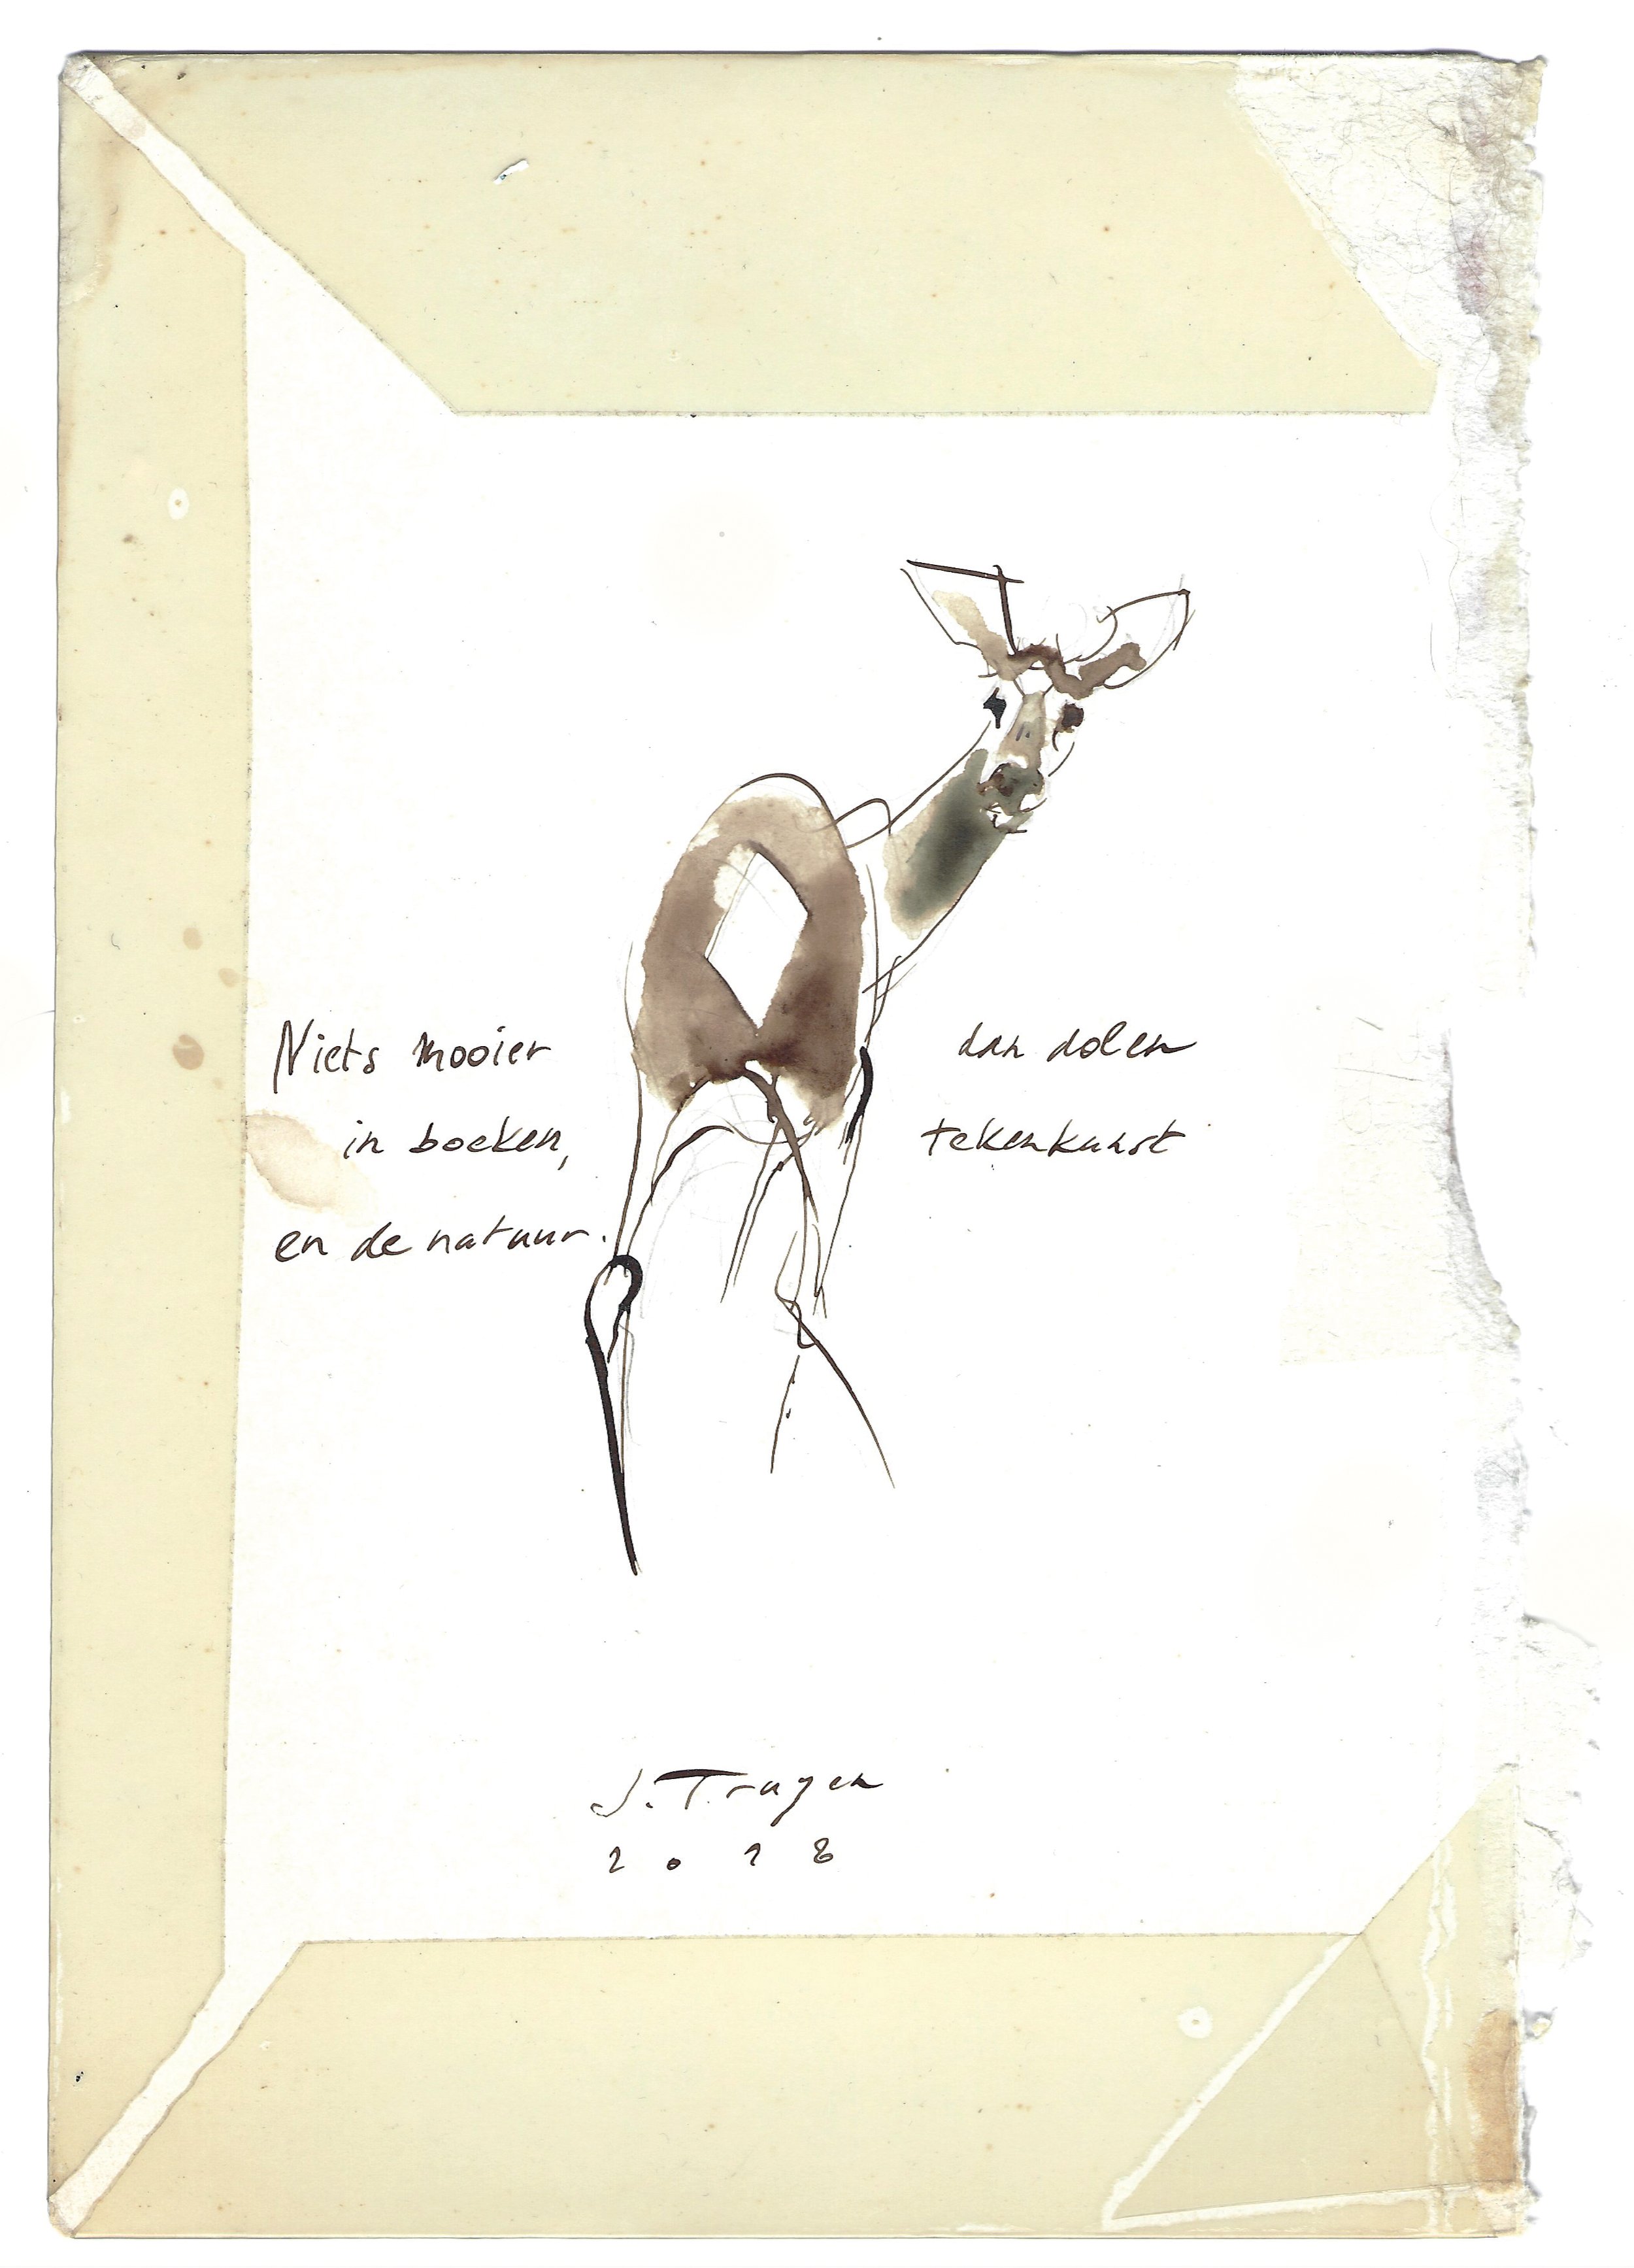 Niets mooier dan dolen
in boeken, tekenkunst
en de natuur.
J. Tragen
2018